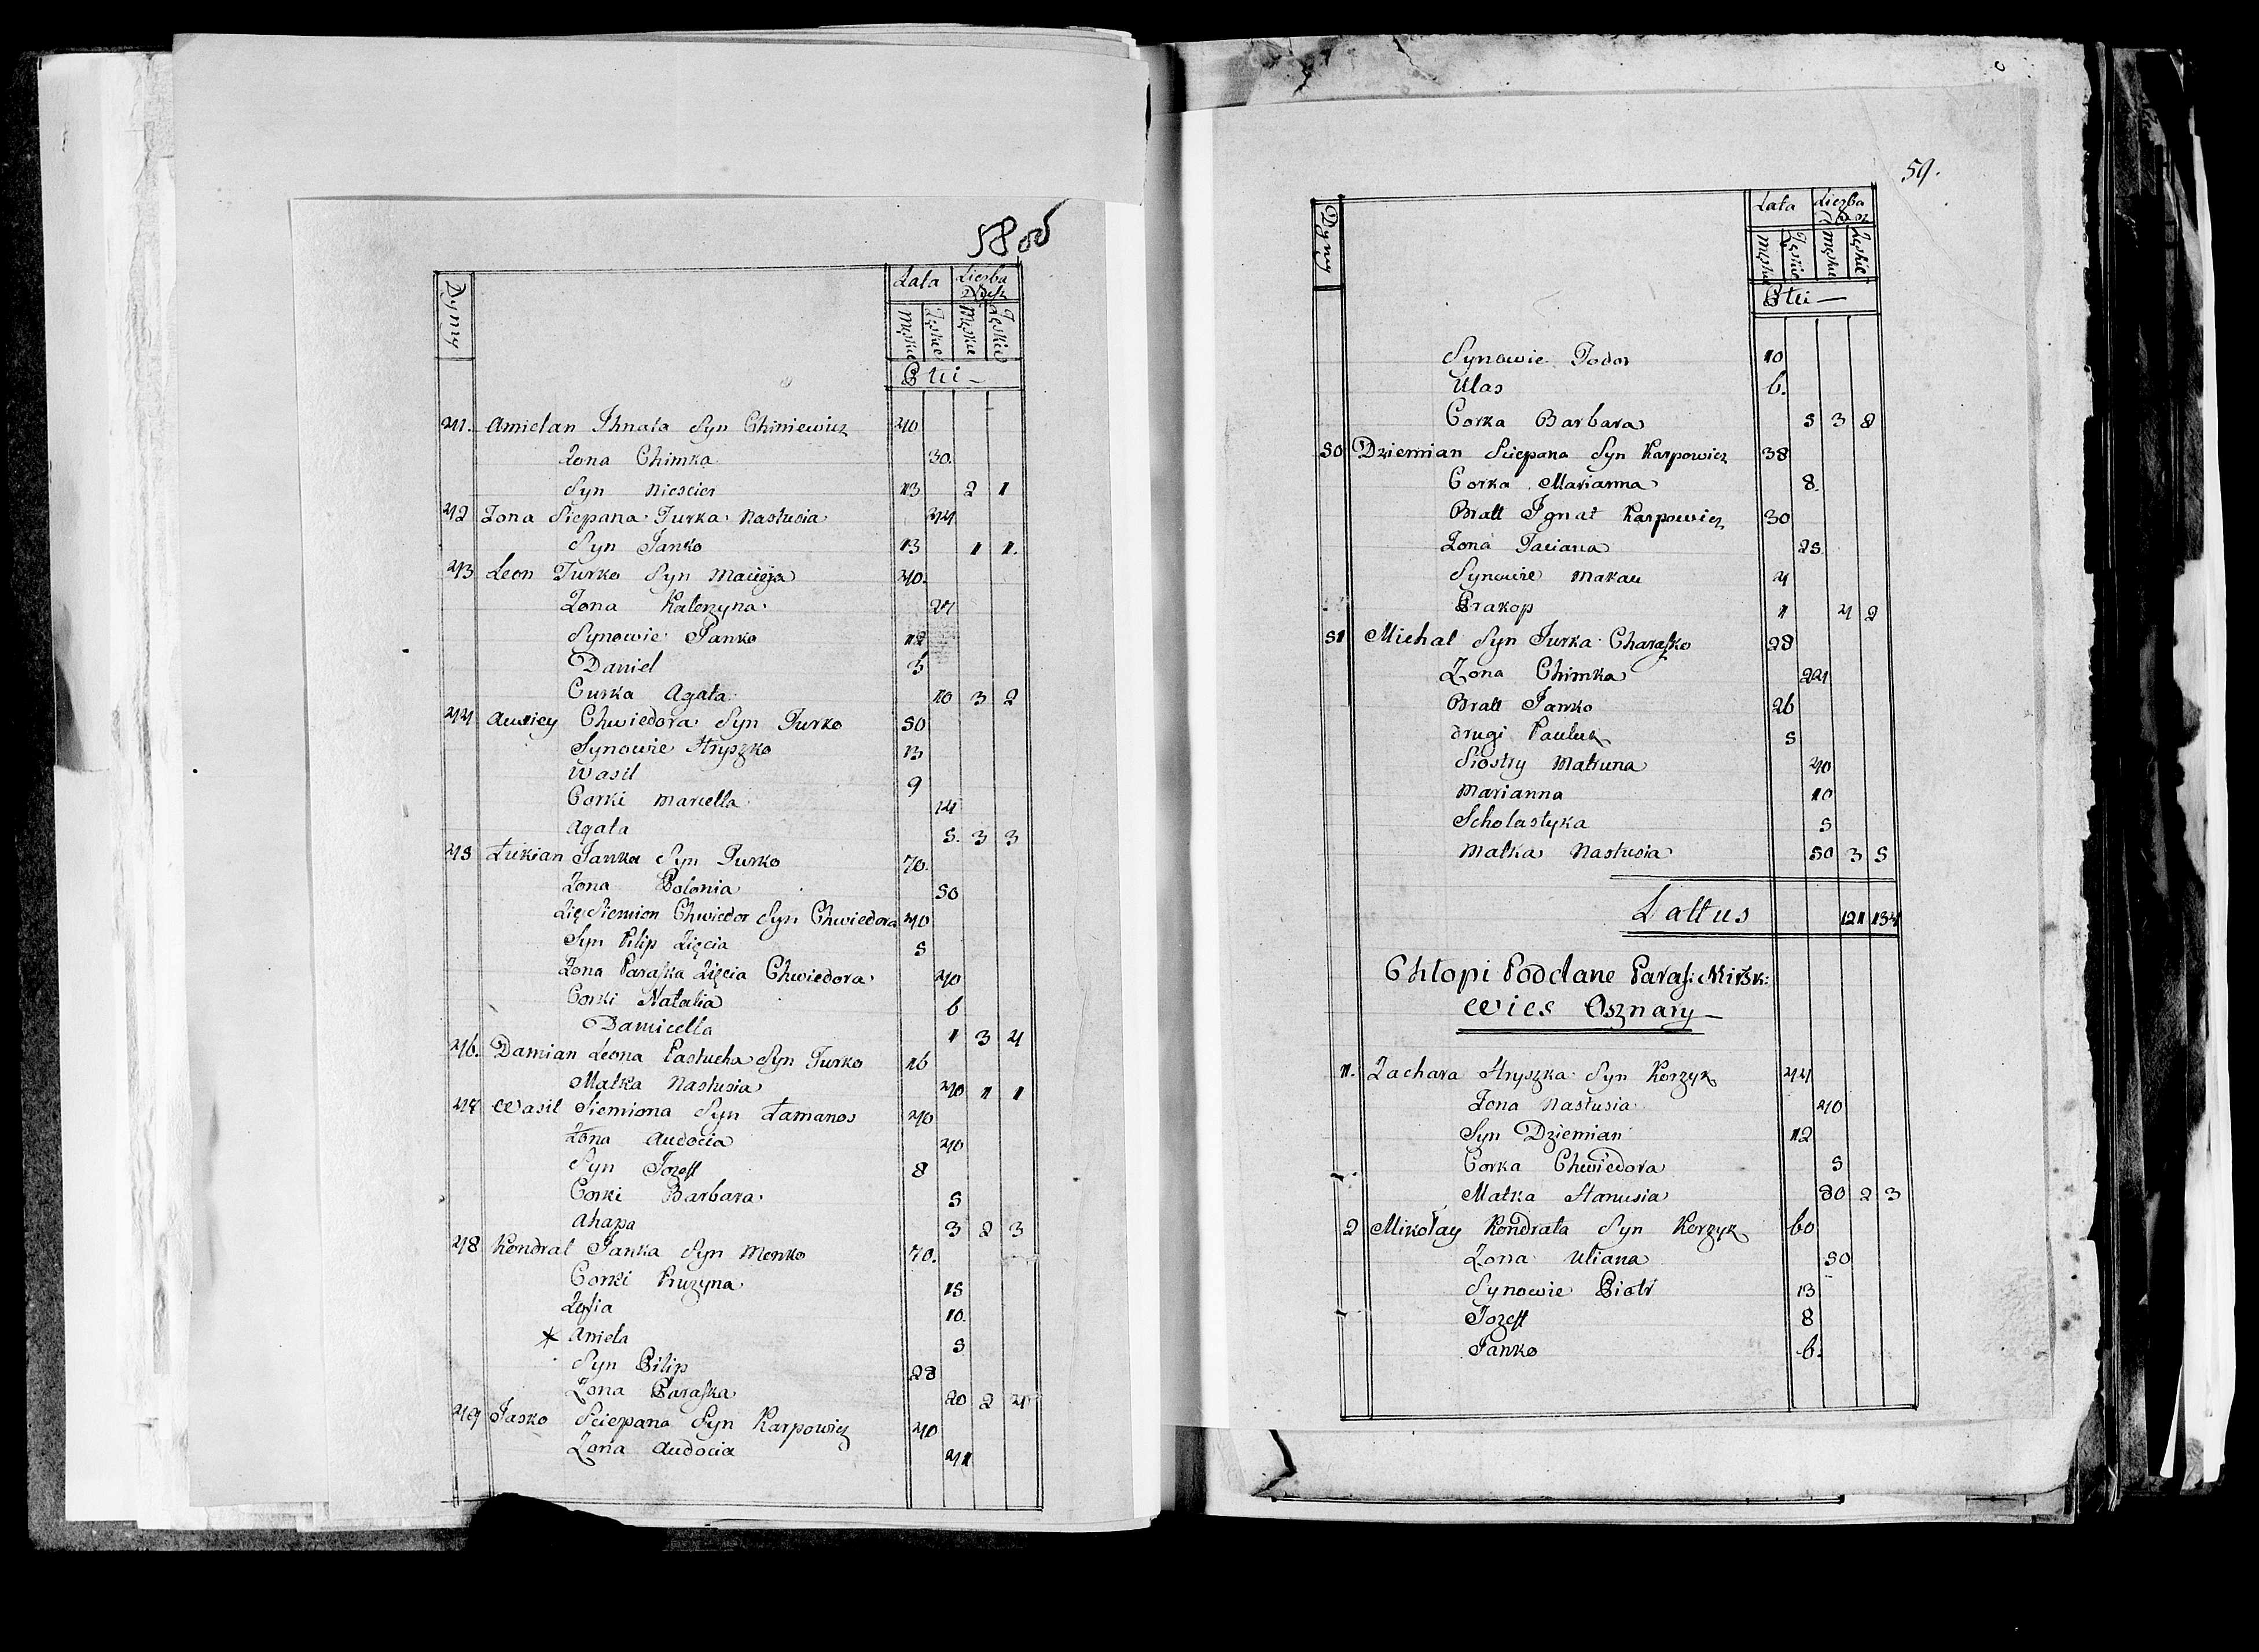 58 об
Dymy
Łata Liczba Dusz
Męskie Żęskie Męskie Żęskie
Płci —
41. Amielan Ihnata Syn Chiniewicz 40
Zona Chimka 30.
Syn Niescier 13 2 1
42 Zona Siepana Jurka Nastusia 44
Syn Janko 13 1 1.
43 Leon Jurko Syn Macieja 40.
Zona Katerzyna 27
Synowie Janko 12
Daniel 5
Curka Agata 10 3 2
44 Auxiey Chwiedora Syn Jurko 50
Synowie Hryszko 13
Wasil 9
Corki Marcella 14
Agata 5. 3 3
45 Łukian Janka Syn Jurko 70.
Zona Polonia 50
Zięć Siemion Chwiedor Syn Chwiedora 40
Syn Pilip Zięcia 5
Zona Paraska Zięcia Chwiedora 40
Corki Natalia 6
Damicella 1 3 4
46. Damian Leona Pastucha Syn Jurko 16
Matka Nastusia 40 1 1
47 Wasil Siemiona Syn Łamanos 40
Zona Audocia 40
Syn Jozeff 8
Corki Barbara 5
Ahapa 3 2 3
48 Kondrat Janka Syn Monko 70.
Corki Kruzyna 15
Zofia 10.
* Anieta 5
Syn Pilip 28
Zona Paraska 20 2 4
49 Jasko Sciepana Syn Karpowicz 40
Zona Audocia 41
59.
Dymy
Łata Liczba Dusz
Męskie Żęskie Męskie Żęskie
Płci —
Synowie Todor 10
Ulas 6.
Corka Barbara 5 3 2
50 Dziemian Sciepana Syn Karpowicz 38
Corka Marianna 8.
Bratt Ignat Karpowicz 30
Zona Taciana 25
Synowie Makau 4
Prakop 1 4 2
51 Michal Syn Jurka Charasko 28
Zona Chimka 24
Bratt Janko 26
drugi Pauluk 5
Siostry Matruna 40
Marianna 10
Scholastyka 5
Matka Nastusia 50 3 5
Lattus 121 134
Chłopi Poddane Paraf: Mirsk:
Wies Osznary —
1. Zachara Hryszka Syn Korzyk 44
Zona Nastusia 40
Syn Dziemian 12
Corka Chwiedora 5
Matka Stanusia 80 2 3
2 Mikołay Kondrata Syn Korzyk 60
Zona Uliana 50
Synowie Piotr 13
Jozeff 8
Janko 6.